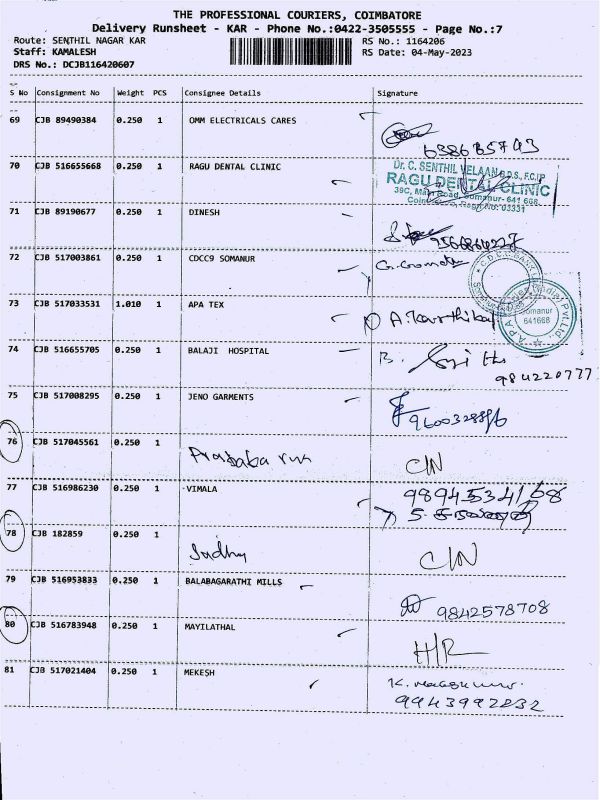 THE PROFESSIONAL COURIERS, COIMBATORE
Delivery Runsheet - KAR - Phone No.:0422-3505555 - Page No.:7
Route: SENTHIL NAGAR KAR
RS No.: 1164206
Staff: KAMALESH
RS Date: 04-May-2023
DRS No.: DCJB116420607
S No Consignment No Weight PCS Consignee Details Signature
69 CJB 89490384 0.250 1 OMM ELECTRICALS CARES
70 CJB 516655668 0.250 1 RAGU DENTAL CLINIC
Dr. C. SENTHIL VELAAN B.D.S., F.C.I.P
RAGU DENTAL CLINIC
39C, Main Road, Somanur- 641 668
71 CJB 89190677 0.250 1 DINESH
72 CJB 517003861 0.250 1 CDCC9 SOMANUR
73 CJB 517033531 1.010 1 APA TEX A. Karthika
Somanur
641668
74 CJB 516655705 0.250 1 BALAJI HOSPITAL
984220777
75 CJB 517008295 0.250 1 JENO GARMENTS
76 CJB 517045561 0.250 1 C/N
77 CJB 516986230 0.250 1 VIMALA 9894534168
78 CJB 182859 0.250 1 Sudhy C/N
79 CJB 516953833 0.250 1 BALABAGARATHI MILLS 9842578708
80 CJB 516783948 0.250 1 MAYILATHAL H/R
81 CJB 517021404 0.250 1 MEKESH
9943992232